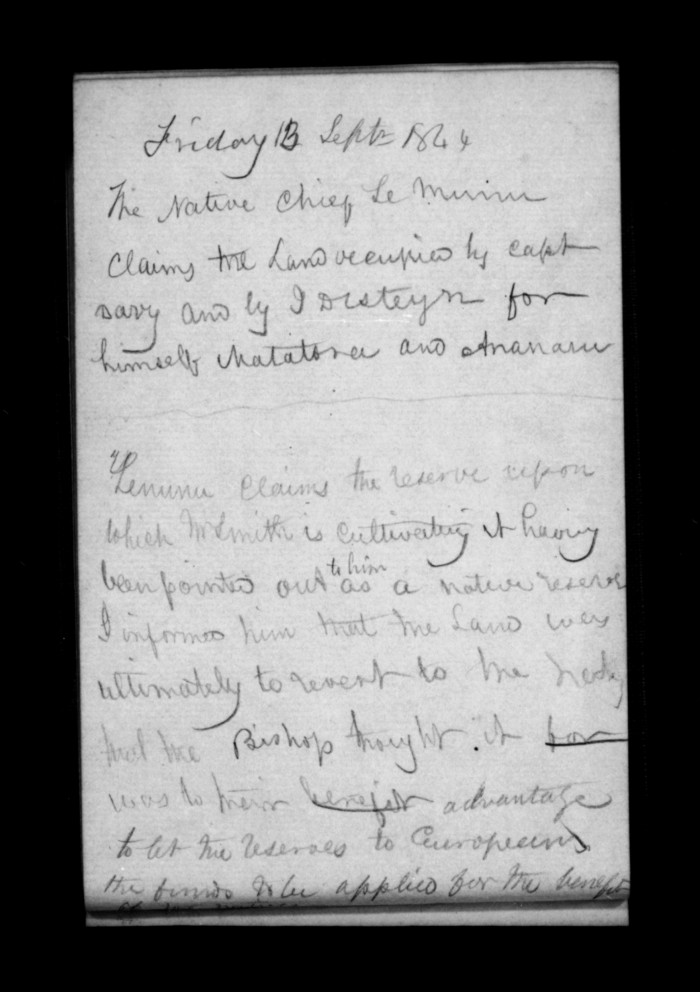 Friday 13 Septr 1844
The Native Chief Te Muinu
Claims the Land occupied by capt
Davy and by I Disteyn for
himself Matatora and Ananaru
Temunu Claims the reserve upon
which Mr Smith is cultivating it having
been pointed out to him as a native reserve
I informed him that the Land was
ultimately to revert to the
that the Bishop thought it for
was to their benefit advantage
to let the reserves to Europeans
the funds to be applied for the benefit